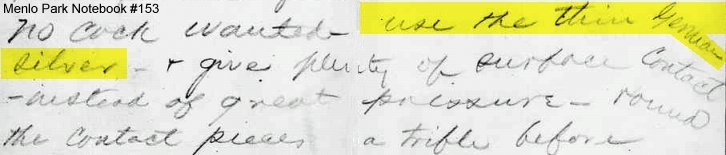 Menlo Park Notebook #153
no cock wanted - use the thin German
silver - & give plenty of surface contact
- instead of great pressure - round
the contact pieces a trifle before